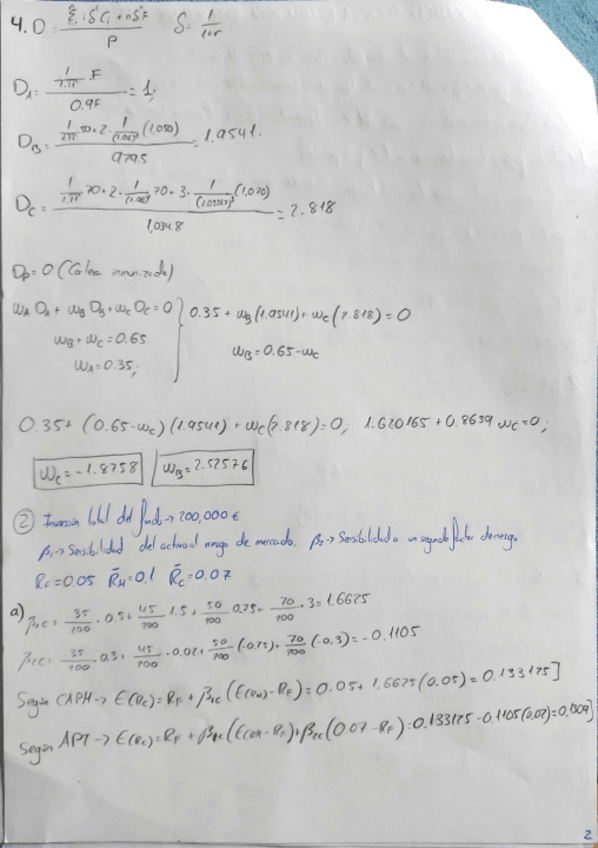 4. D = (Σ i δ^i C_i + n δ^n F) / P    δ = 1/(1+r)
D_A = (1/1.11 · F) / 0.9F = 1;
D_B = (1/1.11 50 + 2 · (1,050)) / 979.5 = 1.9541.
D_C = (1/1.11 70 + 2 · 70 + 3 · (1,070)) / 1,034.8 = 2.818
D_P = 0 (Cartera inmunizada)
W_A D_A + W_B D_B + W_C D_C = 0 } 0.35 + W_B (1.9541) + W_C (2.818) = 0
W_B + W_C = 0.65
W_B = 0.65 - W_C
W_A = 0.35;
0.35 + (0.65 - W_C) (1.9541) + W_C (2.818) = 0; 1.620165 + 0.8639 W_C = 0;
W_C = -1.8758   W_B = 2.52576
② Inversión total del fondo → 200,000 €
β_1 → Sensibilidad del activo al riesgo de mercado. β_2 → Sensibilidad a un segundo factor de riesgo.
R_F = 0.05 R̄_M = 0.1 R̄_C = 0.07
a) β_1C = 35/200 · 0.5 + 45/200 · 1.5 + 50/200 0.75 + 70/200 · 3 = 1.6625
β_2C = 35/200 · 0.3 + 45/200 · 0.02 + 50/200 (-0.25) + 70/200 (-0.3) = -0.1105
Según CAPM → E(R_C) = R_F + β_1C (E(R_M) - R_F) = 0.05 + 1.6625 (0.05) = 0.133125]
Según APT → E(R_C) = R_F + β_1C (E(R_M - R_F) + β_2C (0.07 - R_F) = 0.133125 - 0.1105 (0.02) =
2